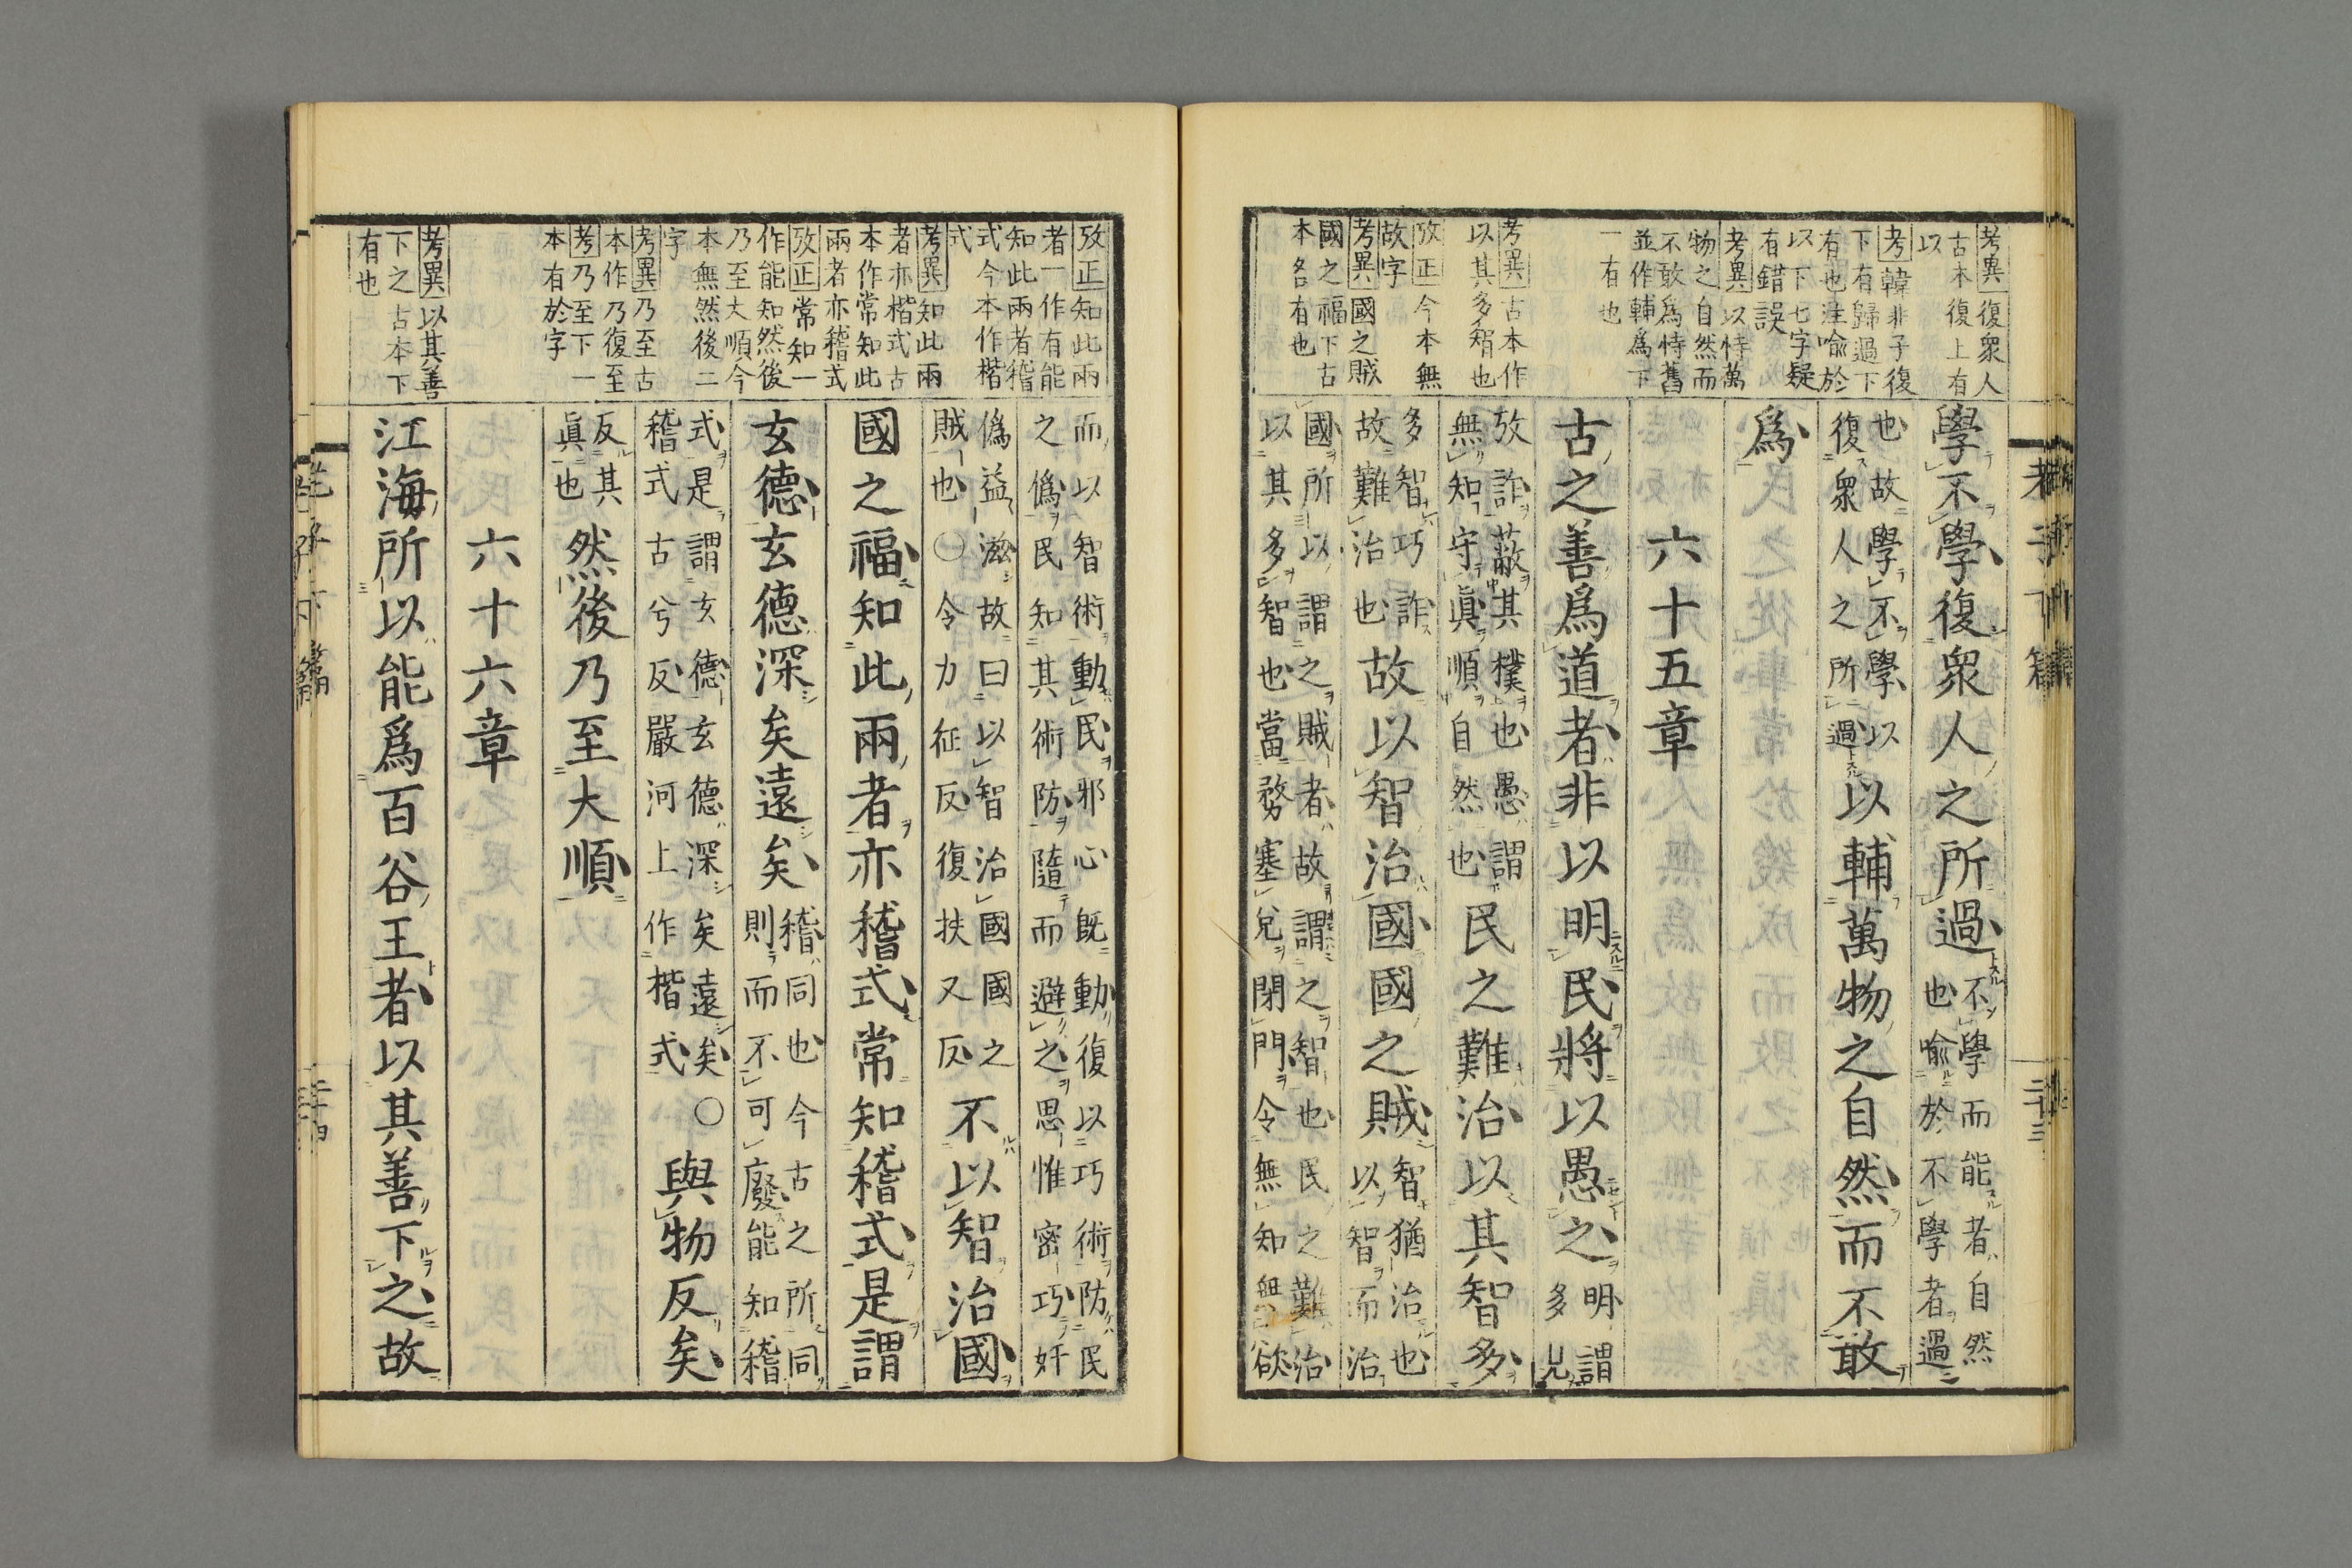 考異復衆人
古本復上有
以
考韓非子復
下有歸過下
有也注喩於
以下七字疑
有錯誤
考異以恃萬
物之自然而
不敢爲恃舊
並作輔爲下
一有也
考異古本作
以其多智也
攷正今本無
故字
考異國之賊
國之福下古
本各有也
學不學復衆人之所過
不學而能者自然
也喩於不學者過
也故學不學以
復衆人之所過
以輔萬物之自然而不敢
爲
六十五章
古之善爲道者非以明民將以愚之
明謂
多見
攷詐蔽其樸也愚謂
無知守眞順自然也
民之難治以其智多
多智巧詐
故難治也
故以智治國國之賊
智猶治也
以智而治
國所以謂之賊者故謂之智也民之難治
以其多智也當務塞兌閉門令無知無欲
老子下篇
二十三
攷正知此兩
者一作有能
知此兩者稽
式今本作楷
式
考異知此兩
者亦楷式古
本作常知此
兩者亦稽式
攷正常知一
作能知然後
乃至大順今
本無然後二
字
考異乃至古
本作乃復至
考乃至下一
本有於字
考異以其善
下之古本下
有也
而以智術動民邪心既動復以巧術防民
之僞民知其術防隨而避之思惟密巧奸
僞益滋故曰以智治國國之
賊也〇令力征反復扶又反
不以智治國
國之福知此兩者亦稽式常知稽式是謂
玄德玄德深矣遠矣
稽同也今古之所同
則而不可廢能知稽
式是謂玄德玄德深矣遠矣〇
稽式古兮反嚴河上作楷式
與物反矣
反其
眞也
然後乃至大順
六十六章
江海所以能爲百谷王者以其善下之故
老子下篇
二十四